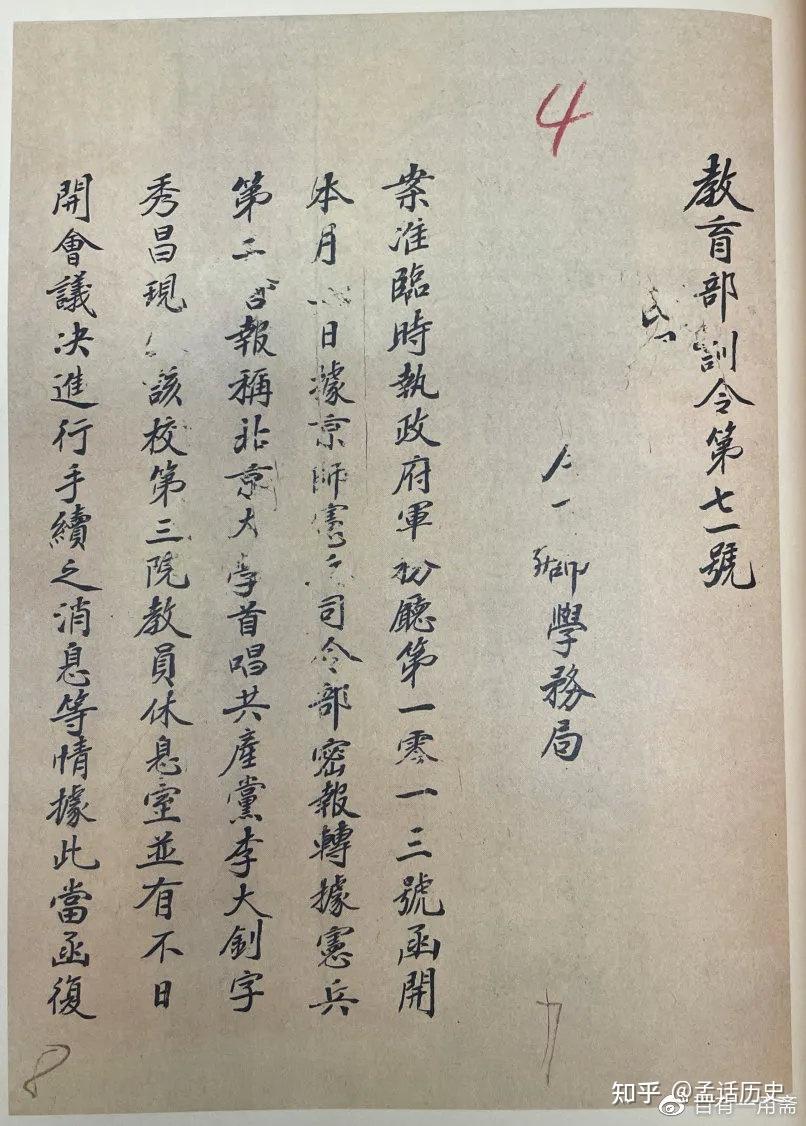 4
教育部訓令第七一號
師學務局
案准臨時執政府軍務廳第一零一三號函開
本月日據京師憲司令部密報轉據憲兵
第二營報稱北京大學首唱共產黨李大釗字
秀昌現該校第三院教員休息室並有不日
開會議決進行手續之消息等情據此當函復
8
知乎 @孟话历史
自有一用斋